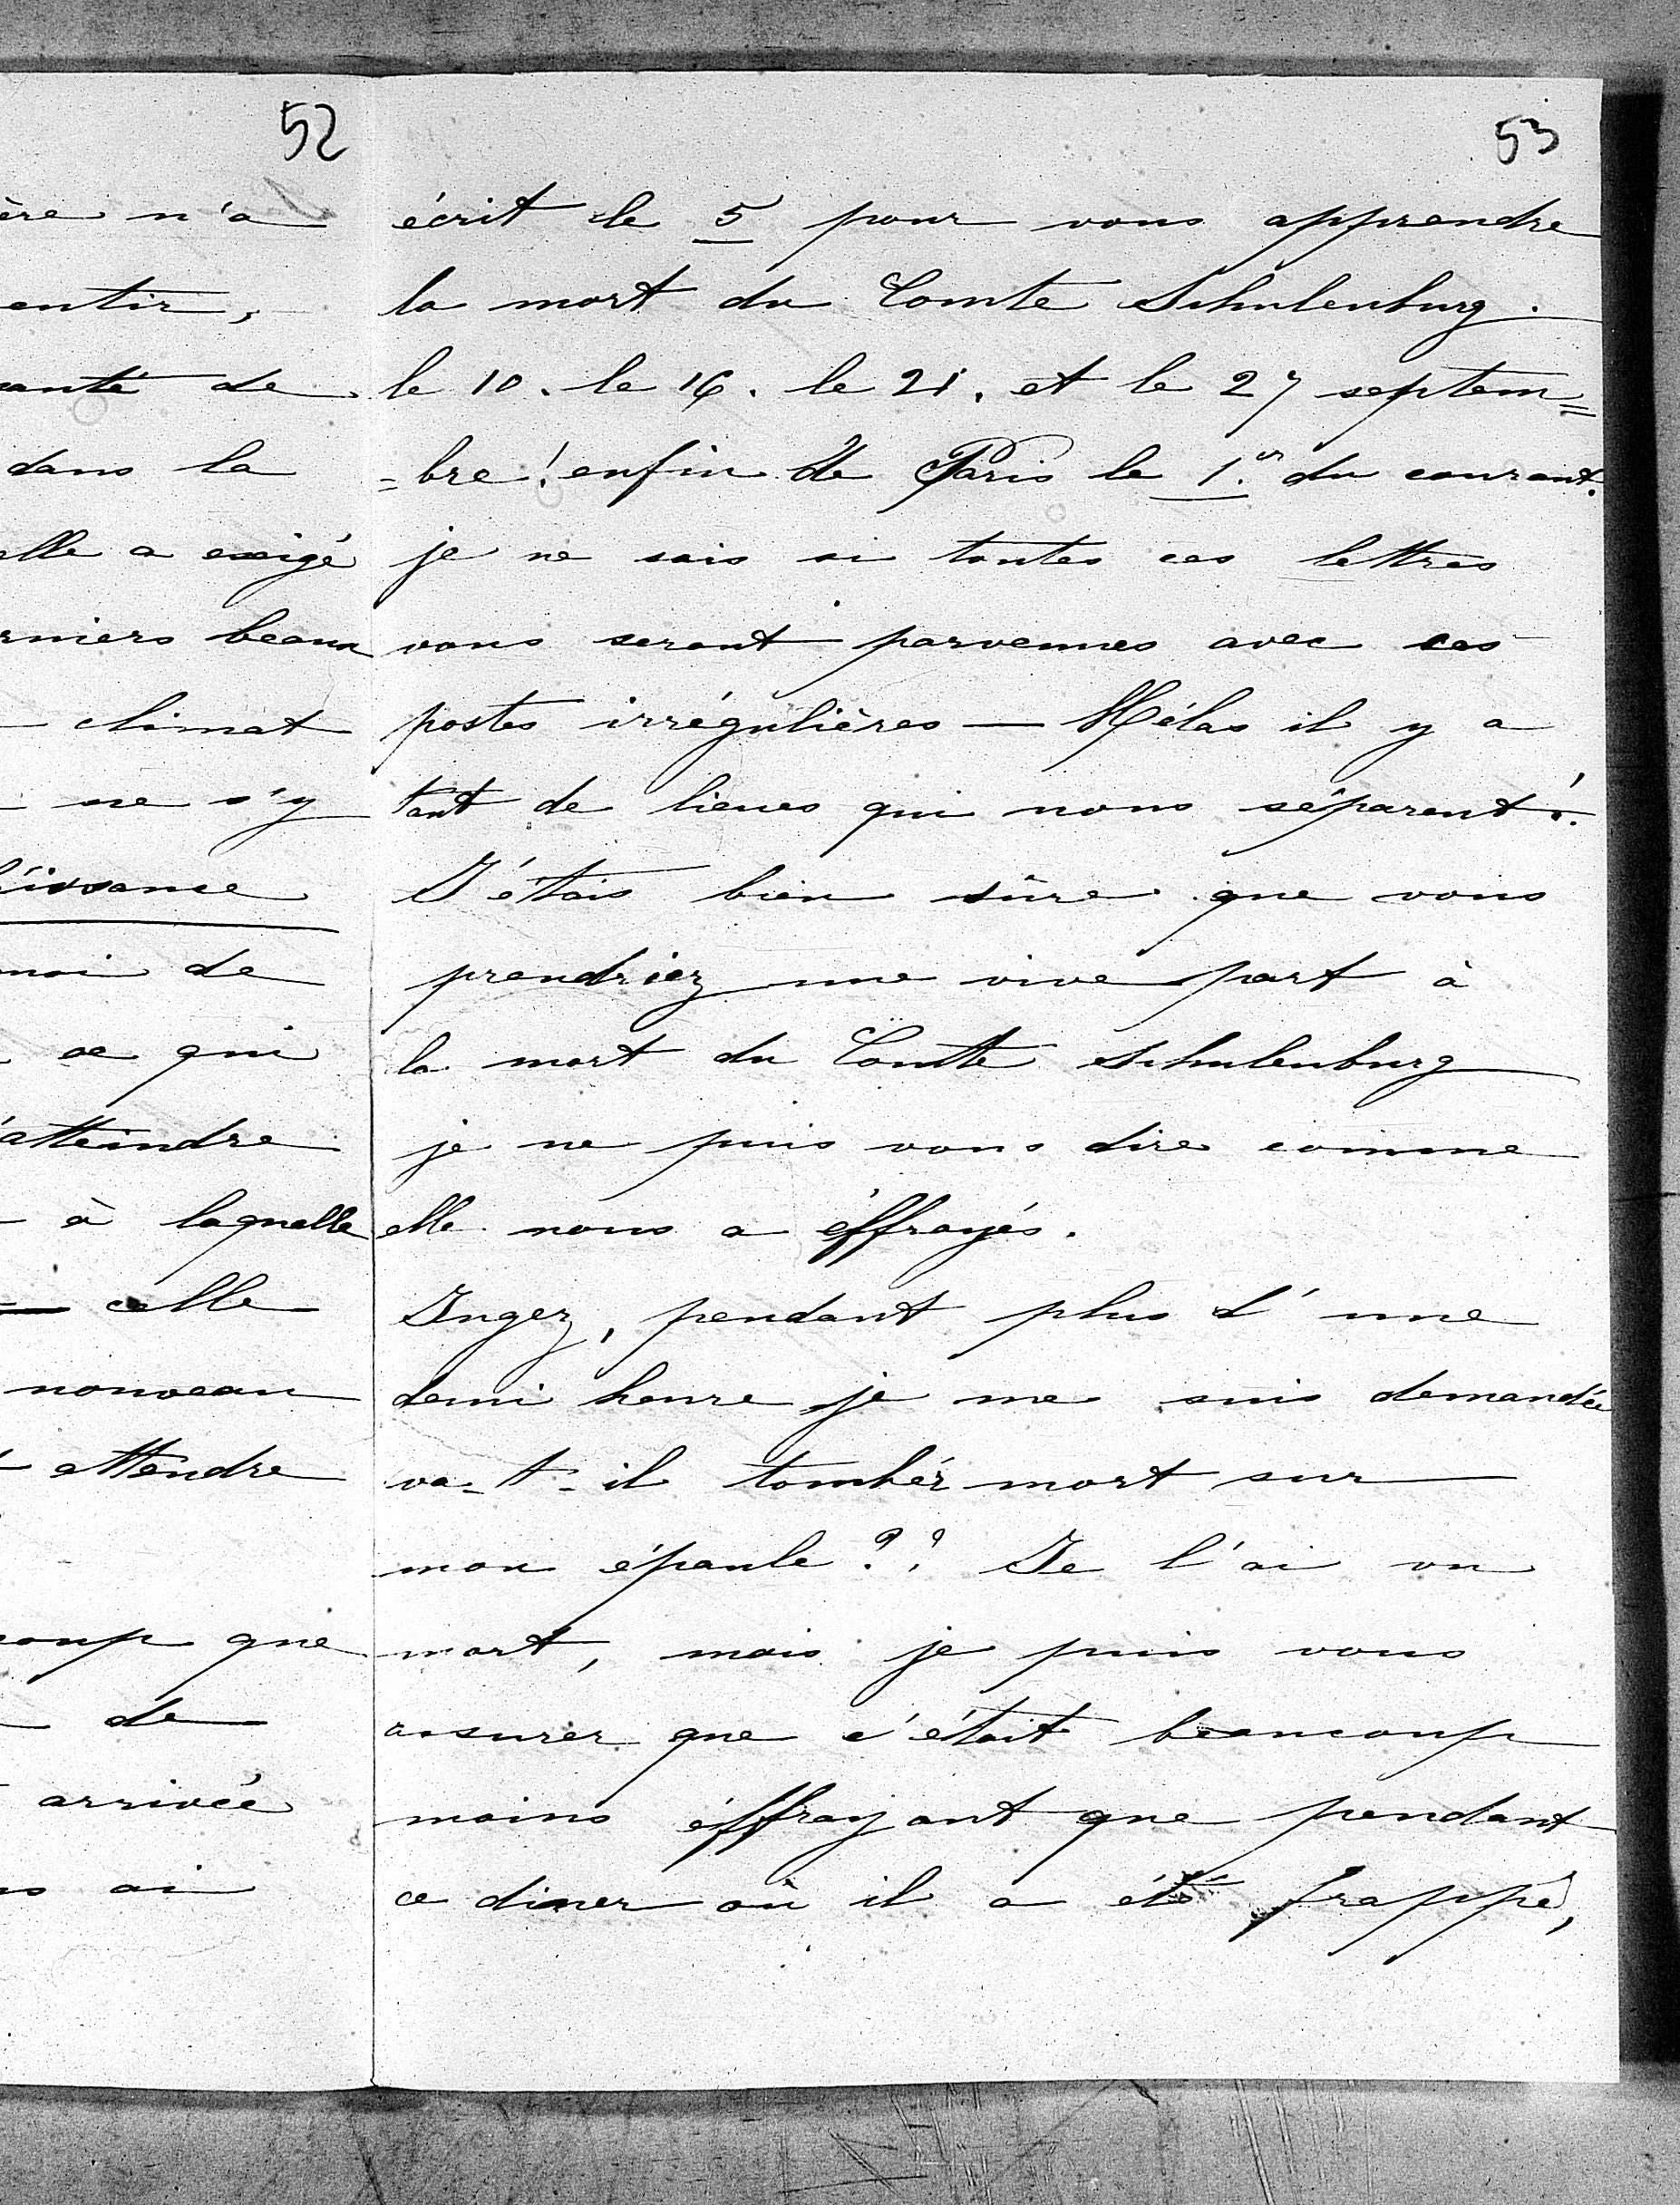 52
ère n'a
entir,
santé de
dans la
elle a exigé
rniers beaux
climat
ne s'y
éissance
moi de
ce qui
atteindre
à laquelle
celle
nouveau
attendre
coup que
de
arrivée
ai
53
écrit le 5 pour vous apprendre
la mort du Comte Schulenburg.
le 10. le 16. le 21. et le 27 septem=
=bre! enfin de Paris le 1.er du courant.
je ne sais si toutes ces lettres
vous seront parvenues avec ces
postes irrégulières — Hélas il y a
tant de lieues qui nous séparent!.
J'étais bien sûre que vous
prendriez une vive part à
la mort du Comte Schulenburg
je ne puis vous dire comme
elle nous a éffrayés.
Jugez, pendant plus d'une
demi heure je me suis demandée
va-t-il tombér mort sur
mon épaule?? Je l'ai vu
mort, mais je puis vous
assurer que c'était beaucoup
moins éffrayant que pendant
ce diner où il a été frappé,